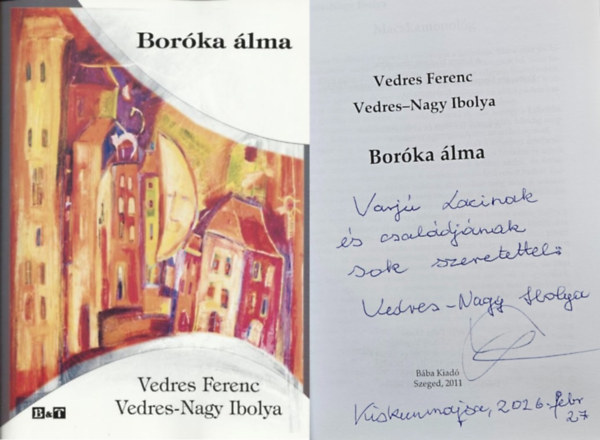 Boróka álma
B&T
Vedres Ferenc
Vedres-Nagy Ibolya
Vedres Ferenc
Vedres–Nagy Ibolya
Boróka álma
Varjú Lacinak
és családjának
sok szeretettel:
Vedres-Nagy Ibolya
Bába Kiadó
Szeged, 2011
Kiskunmajsa, 2026. febr
27